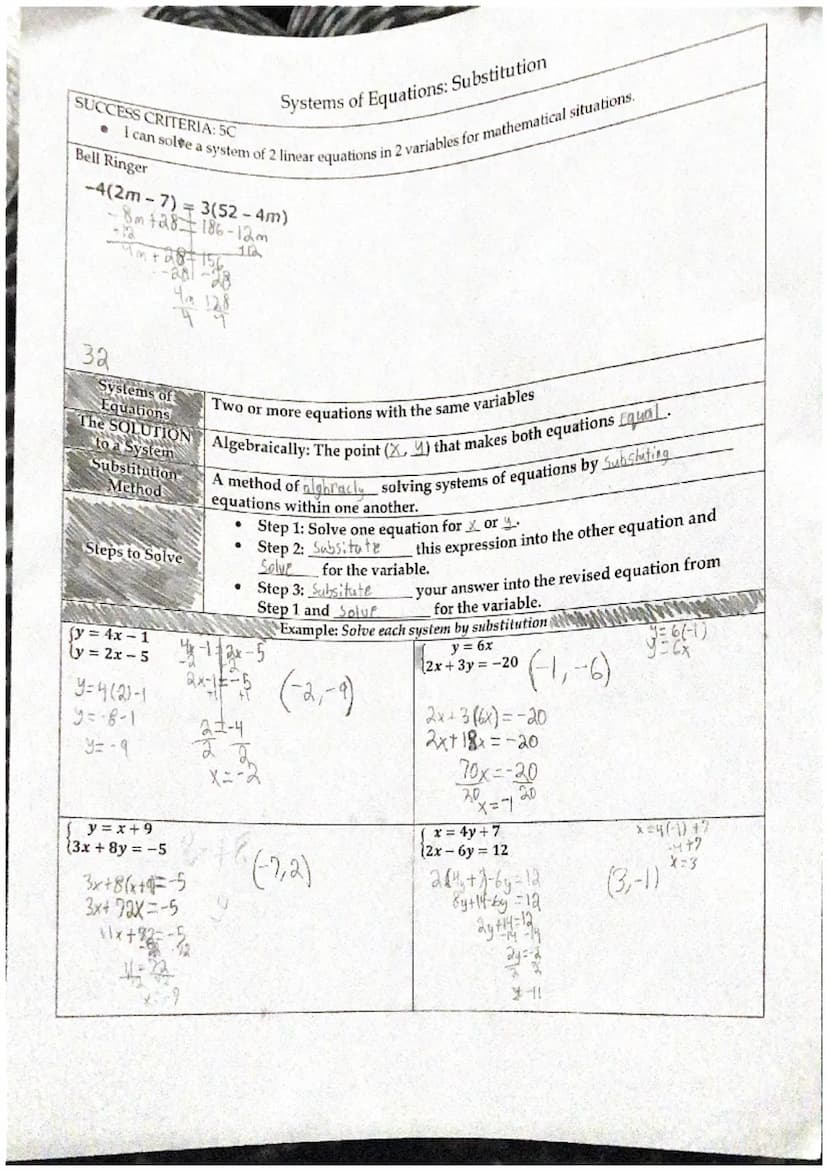 Systems of Equations: Substitution
SUCCESS CRITERIA: 5C
• I can solve a system of 2 linear equations in 2 variables for mathematical situations.
Bell Ringer
-4(2m – 7) = 3(52 – 4m)
-8m + 28 = 186 - 12m
+12 112
4m + 28 = 156
-28 -28
4m 128
4 4
32
Systems of Equations
Two or more equations with the same variables
The SOLUTION to a System
Algebraically: The point (x, y) that makes both equations Equal.
Substitution Method
A method of alghracly solving systems of equations by Substating
equations within one another.
Steps to Solve
• Step 1: Solve one equation for x or y.
• Step 2: Subsitute this expression into the other equation and
Solve for the variable.
• Step 3: Subsitute your answer into the revised equation from
Step 1 and solve for the variable.
Example: Solve each system by substitution
{y = 4x – 1
{y = 2x – 5
4x -1 = 2x - 5
-2 -2
2x-1 = -5
+1 +1
2 = -4
2 2
x = -2
y=4(2)-1
y= -8-1
y= -9
(-2,-9)
y = 6x
{2x + 3y = -20
(-1, -6)
y=6(-1)
y=6x
2x+3(6x) = -20
2x+18x = -20
70x = -20
20 20
x = -1
{ y = x + 9
{3x + 8y = -5
(-7,2)
3x+8(x+9=-5
3x+72x=-5
11x+82=-5
{ x = 4y + 7
{2x – 6y = 12
x=4(-1)+7
-4+7
x=3
(3,-1)
2(4y+7)-6y=12
8y+14-6y=12
2y+14=12
-14 -14
2y=-2
2 2